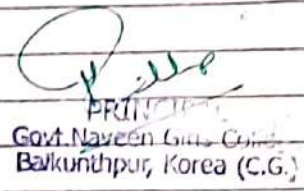 PRINCIPAL
Govt. Naveen Girls College
Baikunthpur, Korea (C.G.)